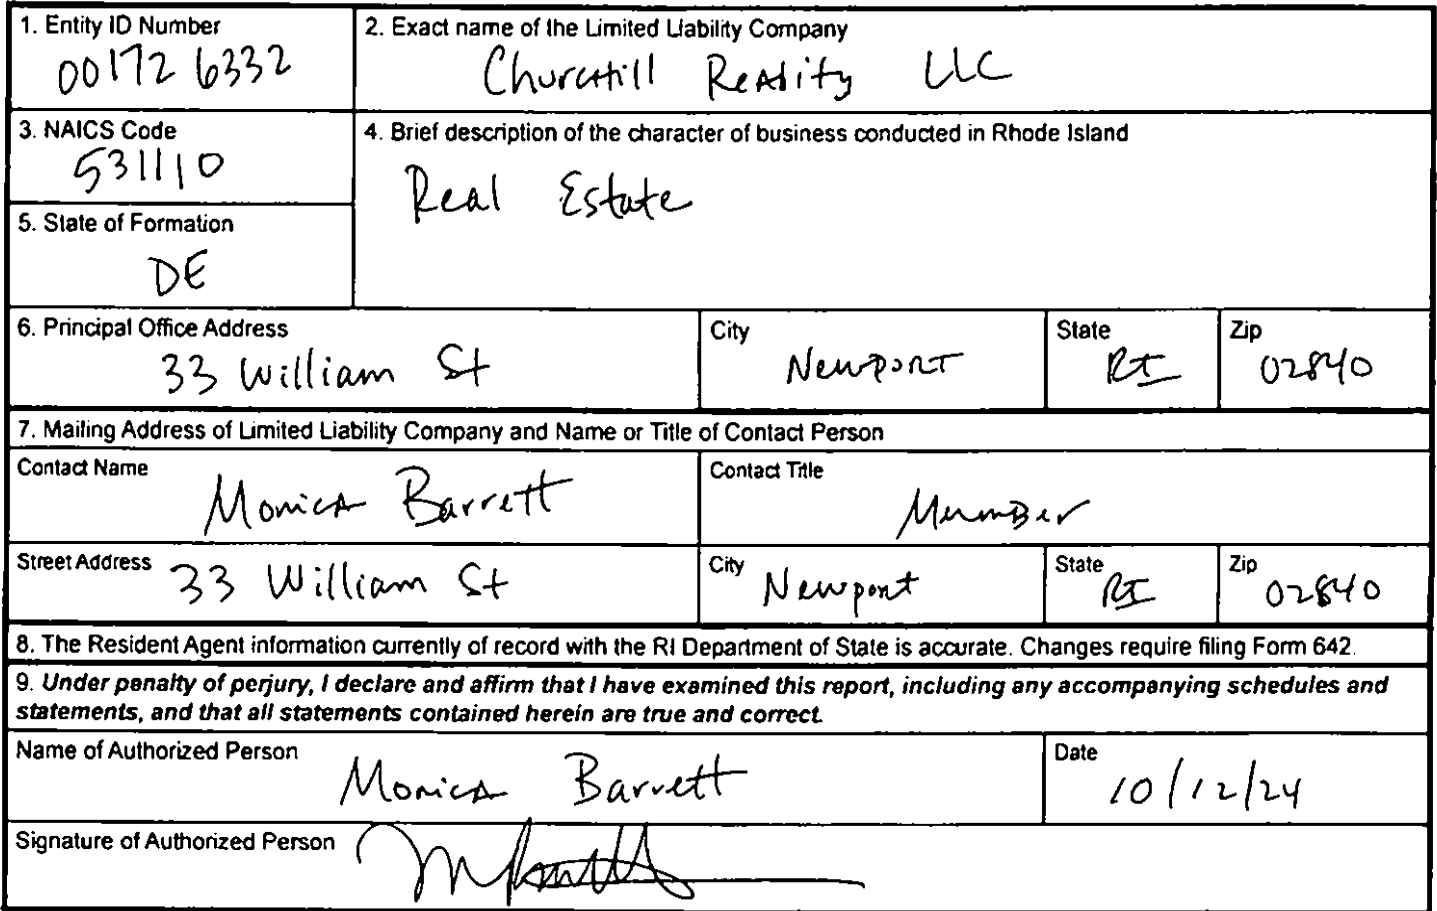 1. Entity ID Number
001726332
2. Exact name of the Limited Liability Company
Churchill Reality LLC
3. NAICS Code
531110
4. Brief description of the character of business conducted in Rhode Island
Real Estate
5. State of Formation
DE
6. Principal Office Address
33 William St
City
Newport
State
RI
Zip
02840
7. Mailing Address of Limited Liability Company and Name or Title of Contact Person
Contact Name
Monica Barrett
Contact Title
Member
Street Address
33 William St
City
Newport
State
RI
Zip
02840
8. The Resident Agent information currently of record with the RI Department of State is accurate. Changes require filing Form 642.
9. Under penalty of perjury, I declare and affirm that I have examined this report, including any accompanying schedules and
statements, and that all statements contained herein are true and correct.
Name of Authorized Person
Monica Barrett
Date
10/12/24
Signature of Authorized Person